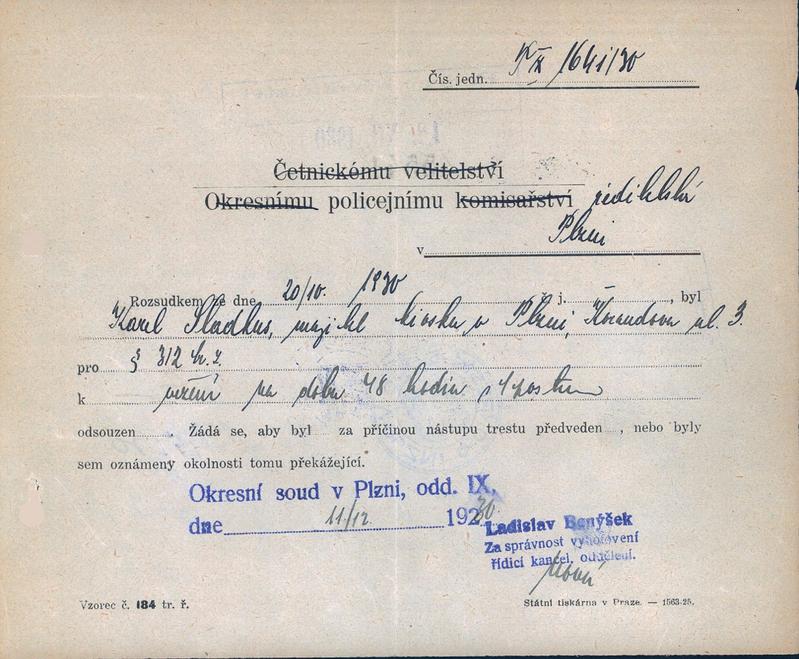 Čís. jedn. 1641/30
Četnickému velitelství
Okresnímu policejnímu komisařství ředitelství
v Plzni
Rozsudkem ze dne 20/10. 1930 č. j. , byl
Karel Sladkus, majitel kiosku v Plzni, Korandova ul. 3.
pro § 312 tr. z.
k vězení na dobu 48 hodin
odsouzen . Žádá se, aby byl za příčinou nástupu trestu předveden , nebo byly
sem oznámeny okolnosti tomu překážející.
Okresní soud v Plzni, odd. IX,
dne 11/12. 1930.
Ladislav Benýšek
Za správnost vyhotovení
řídící kancel. oddělení.
Vzorec č. 184 tr. ř.
Státní tiskárna v Praze. — 1563-25.